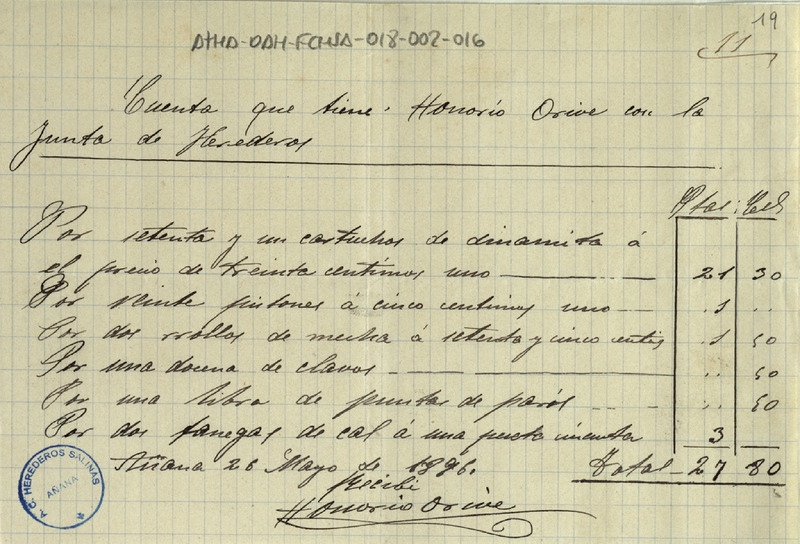 19
ATHA-DAH-FCHSA-018-002-016
11
Cuenta que tiene Honorio Orive con la
Junta de Herederos
Ptas: Cts
Por setenta y un cartuchos de dinamita á
el precio de treinta centimos uno 21 30
Por veinte pistones á cinco centimos uno 1 ..
Por dos rrollos de mecha á setenta y cinco cents 1 50
Por una docena de clavos .. 50
Por una libra de puntas de .. 50
Por dos fanegas de cal á una peseta cincuenta 3
Añana 26 Mayo de 1896. Total 27 80
Recibi
Honorio Orive
A. C. HEREDEROS SALINAS
AÑANA